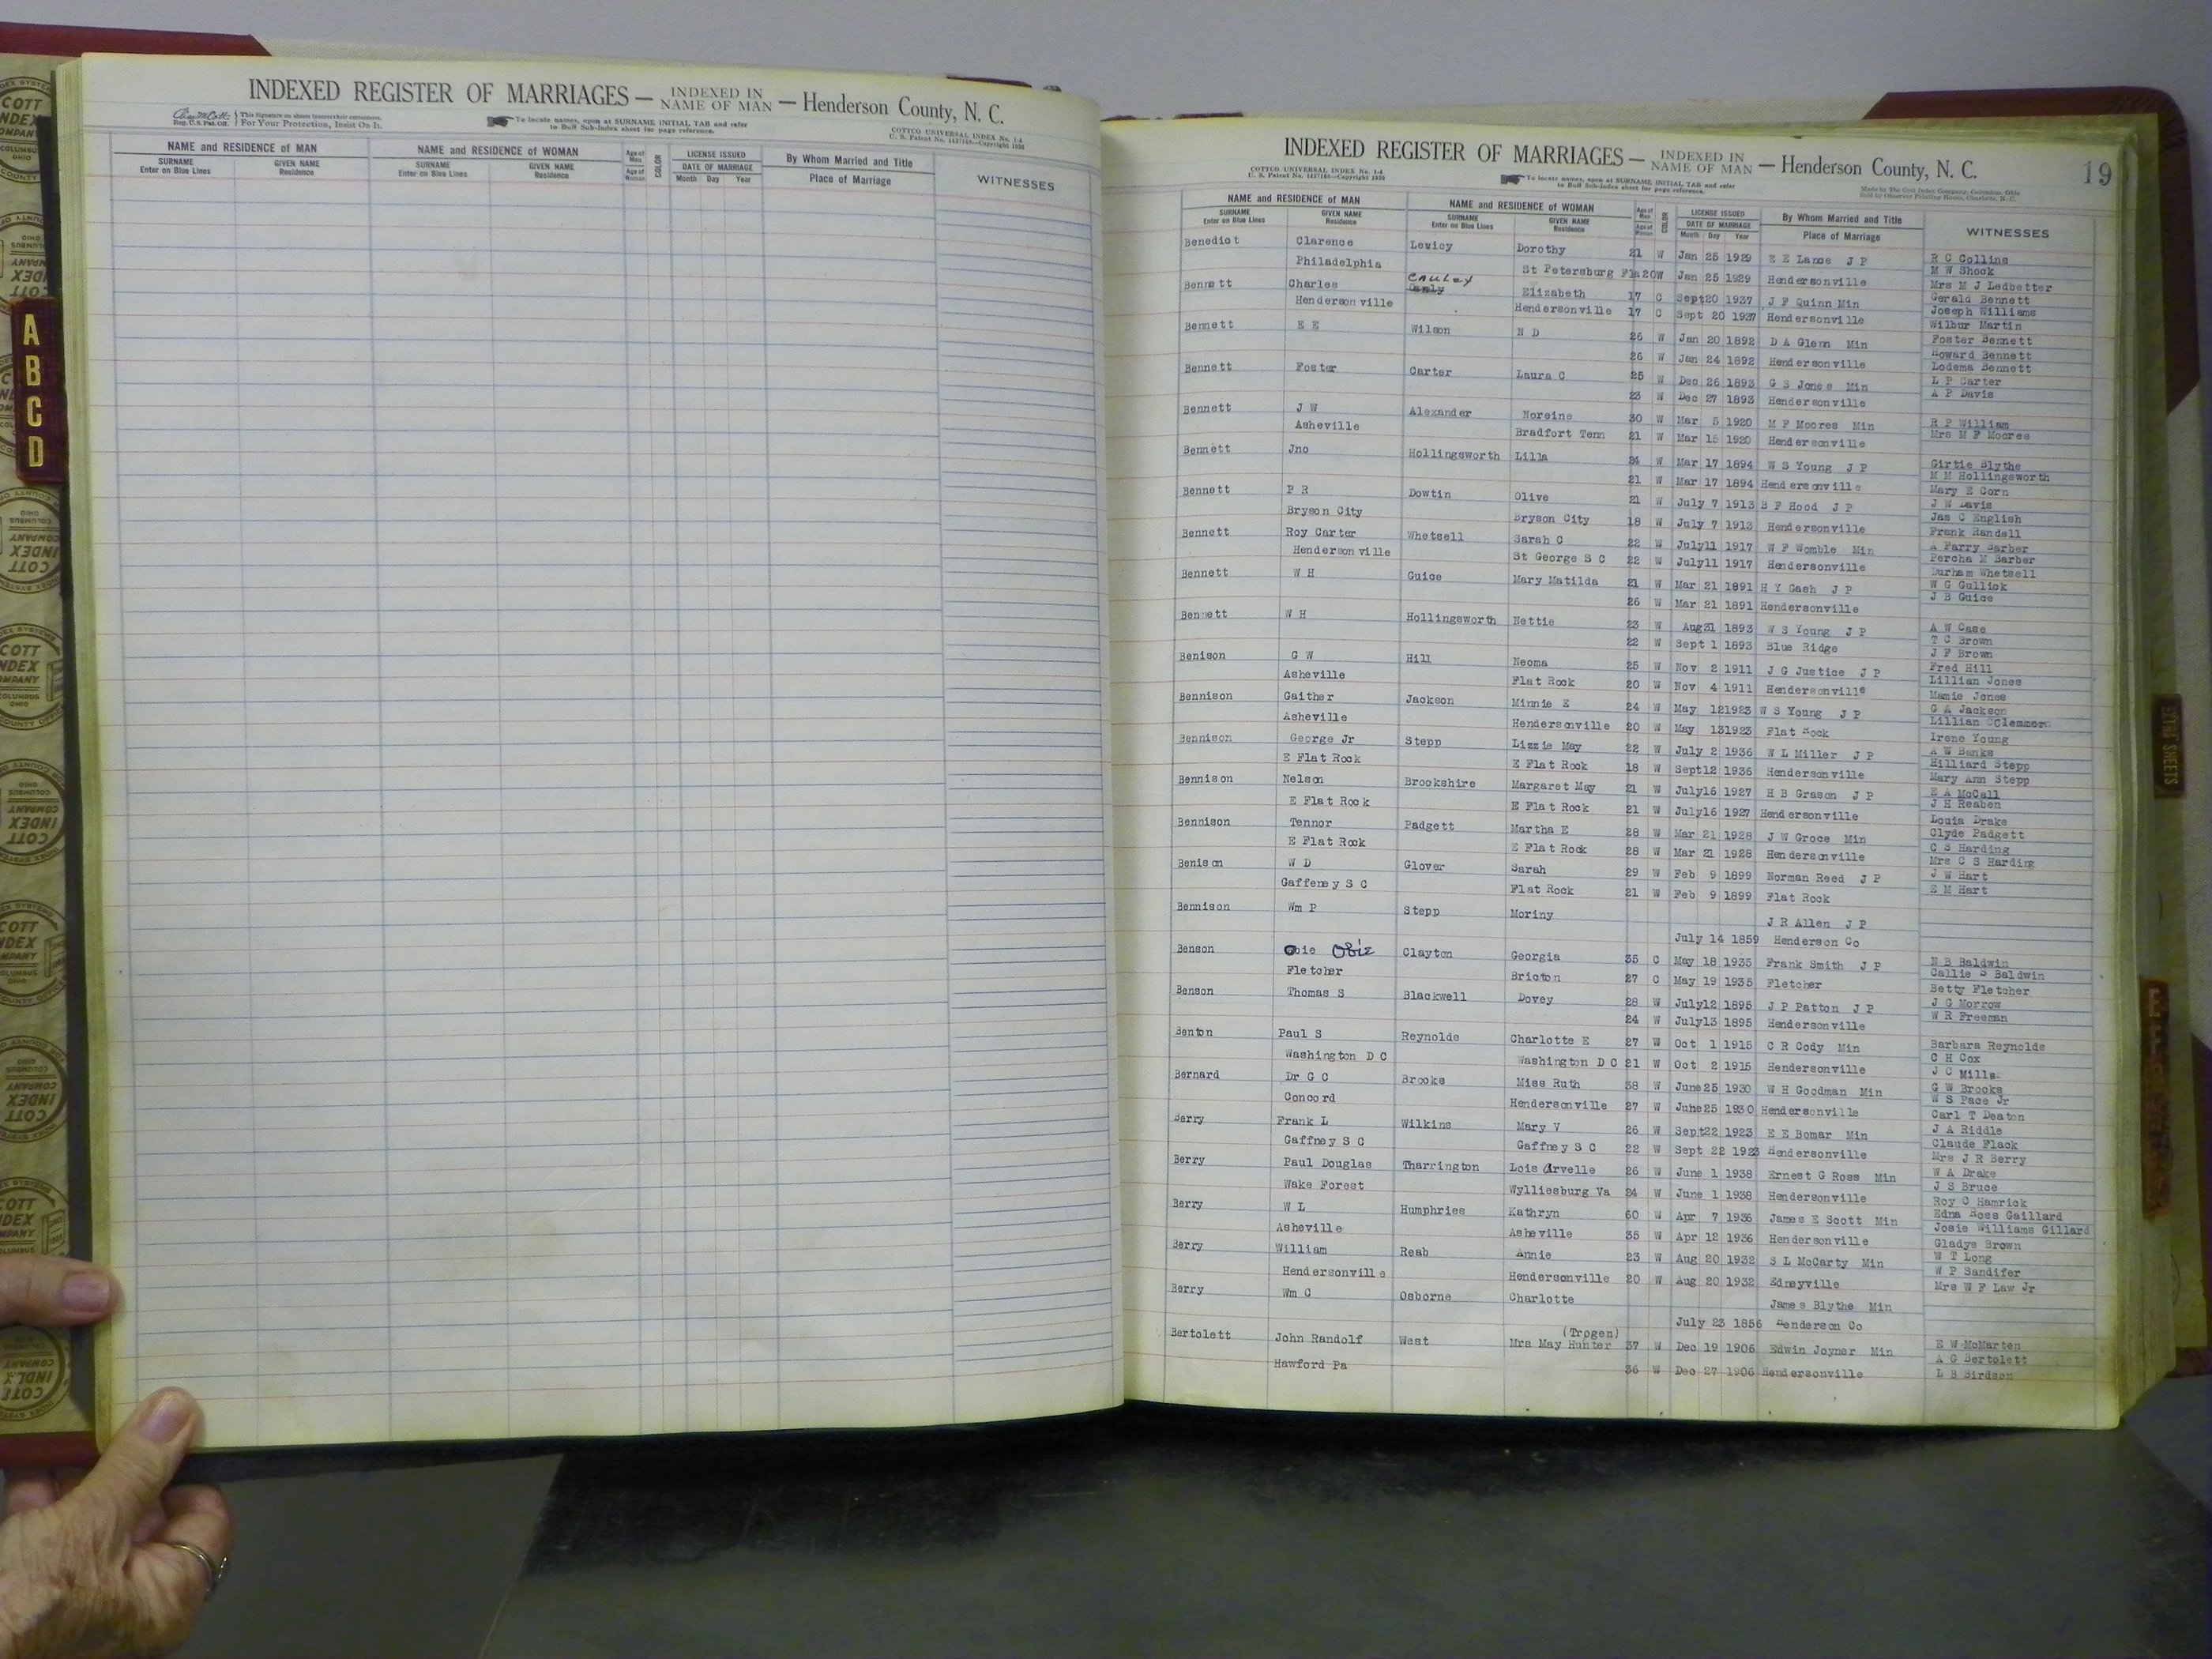 INDEXED REGISTER OF MARRIAGES — INDEXED IN NAME OF MAN — Henderson County, N. C.
This Signature on sheets insures their correctness.
Reg. U.S. Pat. Off. For Your Protection, Insist On It.
To locate names, open at SURNAME INITIAL TAB and refer
to Buff Sub-Index sheet for page reference.
COTTCO UNIVERSAL INDEX No. 1-4
NAME and RESIDENCE OF MAN NAME and RESIDENCE OF WOMAN Age of Man COLOR LICENSE ISSUED By Whom Married and Title WITNESSES
SURNAME GIVEN NAME SURNAME GIVEN NAME Age of Woman DATE OF MARRIAGE Place of Marriage
Enter on Blue Lines Residence Enter on Blue Lines Residence Month Day Year
A
B
C
D
COTT
INDEX
COMPANY
COLUMBUS
OHIO
INDEXED REGISTER OF MARRIAGES — INDEXED IN NAME OF MAN — Henderson County, N. C. 19
COTTCO UNIVERSAL INDEX No. 1-4
To locate names, open at SURNAME INITIAL TAB and refer
to Buff Sub-Index sheet for page reference.
Made by The Cott Index Company, Columbus, Ohio
Sold by Observer Printing House, Charlotte, N. C.
NAME and RESIDENCE OF MAN NAME and RESIDENCE OF WOMAN Age of Man COLOR LICENSE ISSUED By Whom Married and Title WITNESSES
SURNAME GIVEN NAME SURNAME GIVEN NAME Age of Woman DATE OF MARRIAGE Place of Marriage
Enter on Blue Lines Residence Enter on Blue Lines Residence Month Day Year
Benedict Clarence Lewicy Dorothy 21 W Jan 25 1929 E E Lance J P R C Collins
Philadelphia St Petersburg Fla 20 W Jan 25 1929 Hendersonville M W Shock
Mrs M J Ledbetter
Bennett Charles CAULEY Elizabeth 17 C Sept 20 1937 J F Quinn Min Gerald Bennett
Hendersonville Hendersonville 17 C Sept 20 1937 Hendersonville Joseph Williams
Wilbur Martin
Bennett E E Wilson N D 26 W Jan 20 1892 D A Glenn Min Foster Bennett
26 W Jan 24 1892 Hendersonville Howard Bennett
Lodema Bennett
Bennett Foster Carter Laura C 25 W Dec 26 1893 G S Jones Min L P Carter
23 W Dec 27 1893 Hendersonville A P Davis
Bennett J W Alexander Noreine 30 W Mar 5 1920 M F Moores Min R P William
Asheville Bradfort Tenn 21 W Mar 15 1920 Hendersonville Mrs M F Moores
Bennett Jno Hollingsworth Lilla 24 W Mar 17 1894 W S Young J P Girtie Blythe
21 W Mar 17 1894 Hendersonville M M Hollingsworth
Mary E Corn
Bennett P R Dowtin Olive 21 W July 7 1913 B F Hood J P J W Davis
Bryson City Bryson City 18 W July 7 1913 Hendersonville Jas C English
Frank Randell
Bennett Roy Carter Whetsell Sarah C 22 W July 11 1917 W F Womble Min A Parry Barber
Hendersonville St George S C 22 W July 11 1917 Hendersonville Percha M Barber
Durham Whetsell
Bennett W H Guice Mary Matilda 21 W Mar 21 1891 H Y Gash J P W G Gullick
26 W Mar 21 1891 Hendersonville J B Guice
Bennett W H Hollingsworth Nettie 23 W Aug 31 1893 W S Young J P A W Case
22 W Sept 1 1893 Blue Ridge T C Brown
J F Brown
Benison G W Hill Neoma 25 W Nov 2 1911 J G Justice J P Fred Hill
Asheville Flat Rock 20 W Nov 4 1911 Hendersonville Lillian Jones
Mamie Jones
Bennison Gaither Jackson Minnie E 24 W May 12 1923 W S Young J P G A Jackson
Asheville Hendersonville 20 W May 13 1923 Flat Rock Lillian Clemmons
Irene Young
Bennison George Jr Stepp Lizzie May 22 W July 2 1936 W L Miller J P A W Banks
E Flat Rock E Flat Rock 18 W Sept 12 1936 Hendersonville Hilliard Stepp
Mary Ann Stepp
Bennison Nelson Brookshire Margaret May 21 W July 16 1927 H B Grason J P E A McCall
E Flat Rock E Flat Rock 21 W July 16 1927 Hendersonville J H Reaben
Louia Drake
Bennison Tennor Padgett Martha E 28 W Mar 21 1928 J W Groce Min Clyde Padgett
E Flat Rock E Flat Rock 28 W Mar 21 1928 Hendersonville C S Harding
Mrs C S Harding
Benison W D Glover Sarah 29 W Feb 9 1899 Norman Reed J P J W Hart
Gaffeney S C Flat Rock 21 W Feb 9 1899 Flat Rock E M Hart
Bennison Wm P Stepp Moriny J R Allen J P
July 14 1859 Henderson Co
Benson Obie Obie Clayton Georgia 35 C May 18 1935 Frank Smith J P N B Baldwin
Fletcher Bricton 27 C May 19 1935 Fletcher Callie S Baldwin
Betty Fletcher
Benson Thomas S Blackwell Dovey 28 W July 12 1895 J P Patton J P J G Morrow
24 W July 13 1895 Hendersonville W R Freeman
Benton Paul S Reynolds Charlotte E 27 W Oct 1 1915 C R Cody Min Barbara Reynolds
Washington D C Washington D C 21 W Oct 2 1915 Hendersonville C H Cox
J C Mills
Bernard Dr G C Brooks Miss Ruth 38 W June 25 1930 W H Goodman Min G W Brooks
Concord Hendersonville 27 W June 25 1930 Hendersonville W S Pace Jr
Carl T Deaton
Berry Frank L Wilkins Mary V 26 W Sept 22 1923 E E Bomar Min J A Riddle
Gaffney S C Gaffney S C 22 W Sept 22 1923 Hendersonville Claude Flack
Mrs J R Berry
Berry Paul Douglas Tharrington Lois Arvelle 26 W June 1 1938 Ernest G Ross Min W A Drake
Wake Forest Wylliesburg Va 24 W June 1 1938 Hendersonville J S Bruce
Roy C Hamrick
Berry W L Humphries Kathryn 60 W Apr 7 1936 James E Scott Min Edna Ross Gaillard
Asheville Asheville 35 W Apr 12 1936 Hendersonville Josie Williams Gillard
Gladys Brown
Berry William Reab Annie 23 W Aug 20 1932 S L McCarty Min W T Long
Hendersonville Hendersonville 20 W Aug 20 1932 Edneyville W P Sandifer
Mrs W F Law Jr
Berry Wm C Osborne Charlotte James Blythe Min
July 23 1856 Henderson Co
Bertolett John Randolf West (Trogen) Mrs May Hunter 37 W Dec 19 1906 Edwin Joyner Min E W McMarten
Hawford Pa 36 W Dec 27 1906 Hendersonville A G Bertolett
L B Birdson
EXTRA SHEETS